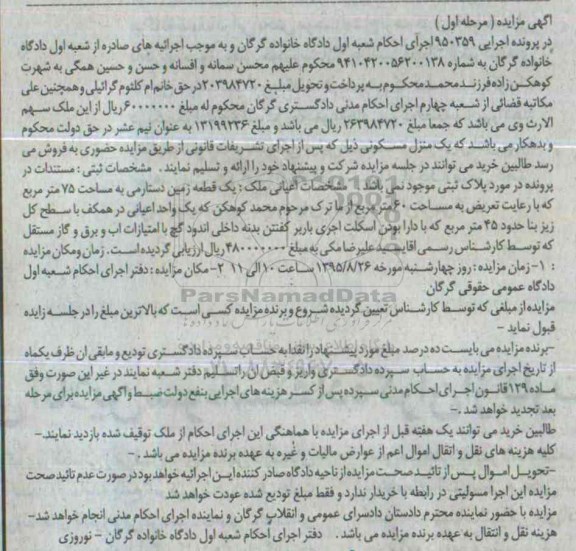 آگهی مزایده ( مرحله اول )
در پرونده اجرایی ۹۵۰۳۵۹ اجرای احکام شعبه اول دادگاه خانواده گرگان و به موجب اجرائیه های صادره از شعبه اول دادگاه
خانواده گرگان به شماره ۹۴۱۰۴۲۰۰۵۶۲۰۰۱۳۸ محکوم علیهم محسن سمانه و افسانه و حسن و حسین همگی به شهرت
کوهکن زاده فرزند محمد محکوم به پرداخت و تحویل مبلغ ۲۰۳۹۸۴۷۲۰ در حق خانم ام کلثوم گرائیلی و همچنین علی
مکاتبه قضائی از شعبه چهارم اجرای احکام مدنی دادگستری گرگان محکوم له مبلغ ۶۰۰۰۰۰۰۰ ریال از این ملک سهم
الارث وی می باشد که جمعا مبلغ ۲۶۳۹۸۴۷۲۰ ریال می باشد و مبلغ ۱۳۱۹۹۲۳۶ به عنوان نیم عشر در حق دولت محکوم
و بدهکار می باشد که یک منزل مسکونی ذیل که پس از اجرای تشریفات قانونی از طریق مزایده حضوری به فروش می
رسد طالبین خرید می توانند در جلسه مزایده شرکت و پیشنهاد خود را ارائه و تسلیم نمایند. مشخصات ثبتی : مستندات در
پرونده در مورد پلاک ثبتی موجود نمی باشد مشخصات اعیانی ملک : یک قطعه زمین دستارمی به مساحت ۷۵ متر مربع
که با رعایت تعریض به مساحت ۶۰ متر مربع از ما ترک مرحوم محمد کوهکن که یک واحد اعیانی در همکف با سطح کل
زیر بنا حدود ۴۵ متر مربع که با دارا بودن اسکلت اجری باربر کفبتن بدنه داخلی اندود گچ با امتیازات اب و برق و گاز مستقل
که توسط کارشناس رسمی اقای سید علیرضا مکی به مبلغ ۴۸۰۰۰۰۰۰۰ ریال ارزیابی گردیده است. زمان ومکان مزایده
: ۱- زمان مزایده : روز چهارشنبه مورخه ۱۳۹۵/۸/۲۶ ساعت ۱۰ الی ۱۱ ۲- مکان مزایده : دفتر اجرای احکام شعبه اول
دادگاه عمومی حقوقی گرگان
مزایده از مبلغی که توسط کارشناس تعیین گردیده شروع و برنده مزایده کسی است که بالاترین مبلغ را در جلسه زایده
قبول نماید -
-برنده مزایده می بایست ده درصد مبلغ مورد پیشنهاد را نقدا به حساب سپرده دادگستری تودیع و مابقی ان ظرف یکماه
از تاریخ اجرای مزایده به حساب سپرده دادگستری واریز و قبض ان را تسلیم دفتر شعبه نمایند در غیر این صورت وفق
ماده ۱۲۹ قانون اجرای احکام مدنی سپرده پس از کسر هزینه های اجرایی بنفع دولت ضبط و اگهی مزایده برای مرحله
بعد تجدید خواهد شد .-
طالبین خرید می توانند یک هفته قبل از اجرای مزایده با هماهنگی این اجرای احکام از ملک توقیف شده بازدید نمایند.-
کلیه هزینه های نقل و انتقال اموال اعم از عوارض مالیات و غیره به عهده برنده مزایده می باشد .-
-تحویل اموال پس از تائید صحت مزایده از ناحیه دادگاه صادر کننده این اجرائیه خواهد بود در صورت عدم تائید صحت
مزایده این اجرا مسولیتی در رابطه با خریدار ندارد و فقط مبلغ تودیع شده عودت خواهد شد
مزایده با حضور نماینده محترم دادستان دادسرای عمومی و انقلاب گرگان و نماینده اجرای احکام مدنی انجام خواهد شد-
هزینه نقل و انتقال به عهده برنده مزایده می باشد. دفتر اجرای احکام شعبه اول دادگاه خانواده گرگان - نوروزی
ParsNamadData